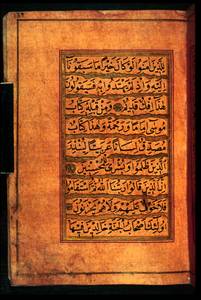 للذين آمنوا لو كان خيرا ما سبقونا
إليه وإذ لم يهتدوا به فسيقولون
هذا إفك قديم ومن قبله كتاب
موسى إماما ورحمة وهذا كتاب
مصدق لسانا عربيا لينذر
الذين ظلموا وبشرى للمحسنين
إن الذين قالوا ربنا الله ثم استقاموا
فلا خوف عليهم ولا هم يحزنون
أولئك أصحاب الجنة خالدين فيها